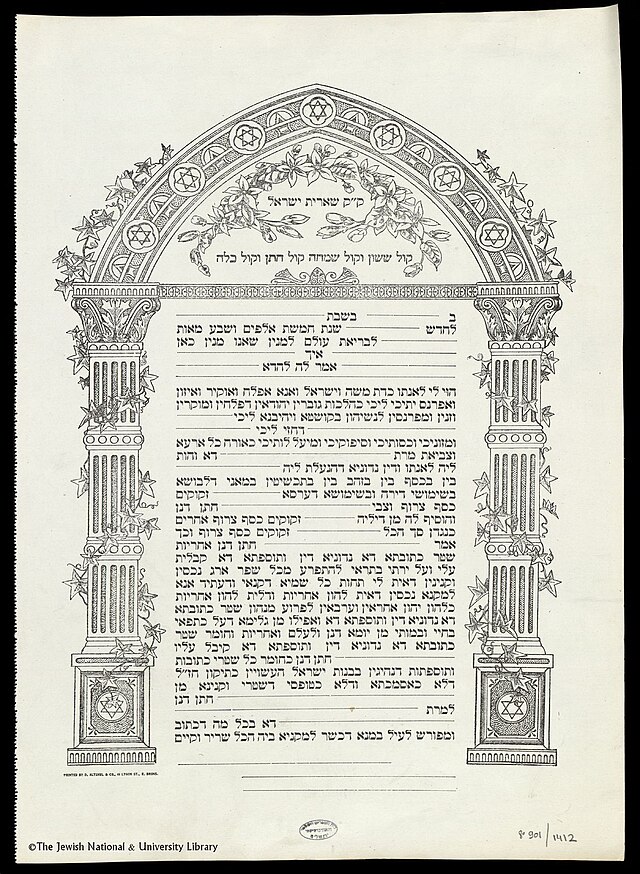 ק״ק שארית ישראל
קול ששון וקול שמחה קול חתן וקול כלה
ב בשבת
לחדש שנת חמשת אלפים ושבע מאות
לבריאת עולם למנין שאנו מנין כאן
איך
אמר לה להדא
הוי לי לאנתו כדת משה וישראל ואנא אפלח ואוקיר ואיזון
ואפרנס יתיכי ליכי כהלכות גוברין יהודאין דפלחין ומוקרין
וזנין ומפרנסין לנשיהון בקושטא ויהיבנא ליכי
דחזי ליכי
ומזוניכי וכסותיכי וסיפוקיכי ומיעל לותיכי כאורח כל ארעא
וצביאת מרת דא והות
ליה לאנתו ודין נדוניא דהנעלת ליה
בין בכסף בין בזהב בין בתכשיטין במאני דלבושא
בשימושי דירה ובשימושא דערסא זקוקים
כסף צרוף וצבי חתן דנן
והוסיף לה מן דיליה זקוקים כסף צרוף אחרים
כנגדן סך הכל זקוקים כסף צרוף וכך
אמר חתן דנן אחריות
שטר כתובתא דא נדוניא דין ותוספתא דא קבלית
עלי ועל ירתי בתראי להתפרע מכל שפר ארג נכסין
וקנינין דאית לי תחות כל שמיא דקנאי ודעתיד אנא
למקנא נכסין דאית להון אחריות ודלית להון אחריות
כלהון יהון אחראין וערבאין לפרוע מנהון שטר כתובתא
דא נדוניא דין ותוספתא דא ואפילו מן גלימא דעל כתפאי
בחיי ובמותי מן יומא דנן ולעלם ואחריות וחומר שטר
כתובתא דא נדוניא דין ותוספתא דא קיבל עליו
חתן דנן כחומר כל שטרי כתובות
ותוספתות דנהיגין בבנות ישראל העשויין כתיקון חז״ל
דלא כאסמכתא ודלא כטופסי דשטרי וקנינא מן
חתן דנן
למרת
דא בכל מה דכתוב
ומפורש לעיל במנא דכשר למקניא ביה הכל שריר וקים
PRINTED BY D. ALTUHEL & CO., 10 LYMAN ST., E. BRONX.
8° 901/1412
©The Jewish National & University Library